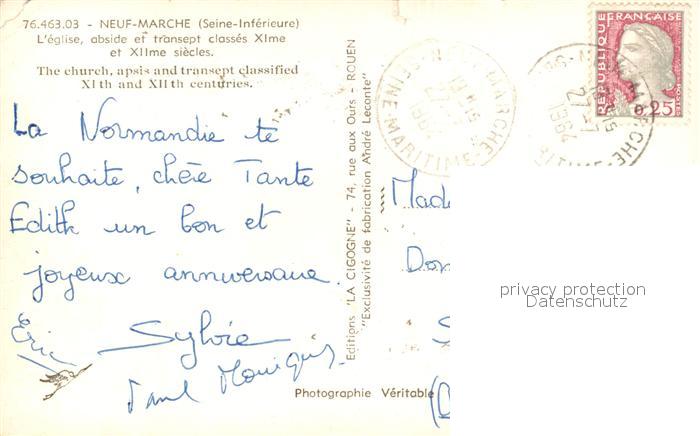 76.463.03 - NEUF-MARCHE (Seine-Inférieure)
L'église, abside et transept classés XIme
et XIIme siècles.
The church, apsis and transept classified
XI th and XII th centuries.
La Normandie te
souhaite, chère Tante
Edith un bon et
joyeux anniversaire.
Eric
Sylvie
Paul
Editions "LA CIGOGNE" - 74, rue aux Ours - ROUEN
"Exclusivité de fabrication André Leconte"
Photographie Véritable
REPUBLIQUE FRANÇAISE
0,25
SEINE-MARITIME
1964
Made
Don
privacy protection
Datenschutz